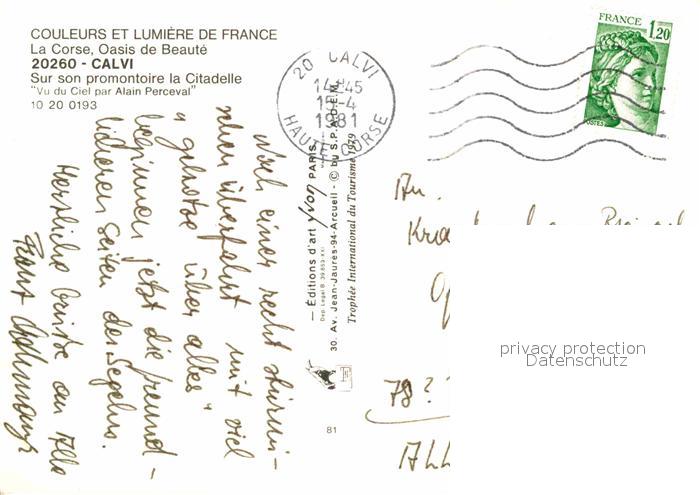 COULEURS ET LUMIÈRE DE FRANCE
La Corse, Oasis de Beauté
20260 - CALVI
Sur son promontoire la Citadelle
"Vu du Ciel par Alain Perceval"
10 20 0193
20 CALVI
14H45
-4
1981
HAUTE CORSE
FRANCE
1,20
POSTES
Nach einer recht stürmi-
schen Überfahrt mit viel
"getratse über alles"
beginnen jetzt die freund-
licheren Seiten des Segelns.
Herzliche Grüße an Alle
Franz
— Éditions d'art Yvon PARIS
30. Av. Jean-Jaurès-94-Arcueil - © by S.P.A.D.E.M.
Trophée International du Tourisme 1979
81
An.
Kra
78?
ALL
privacy protection
Datenschutz